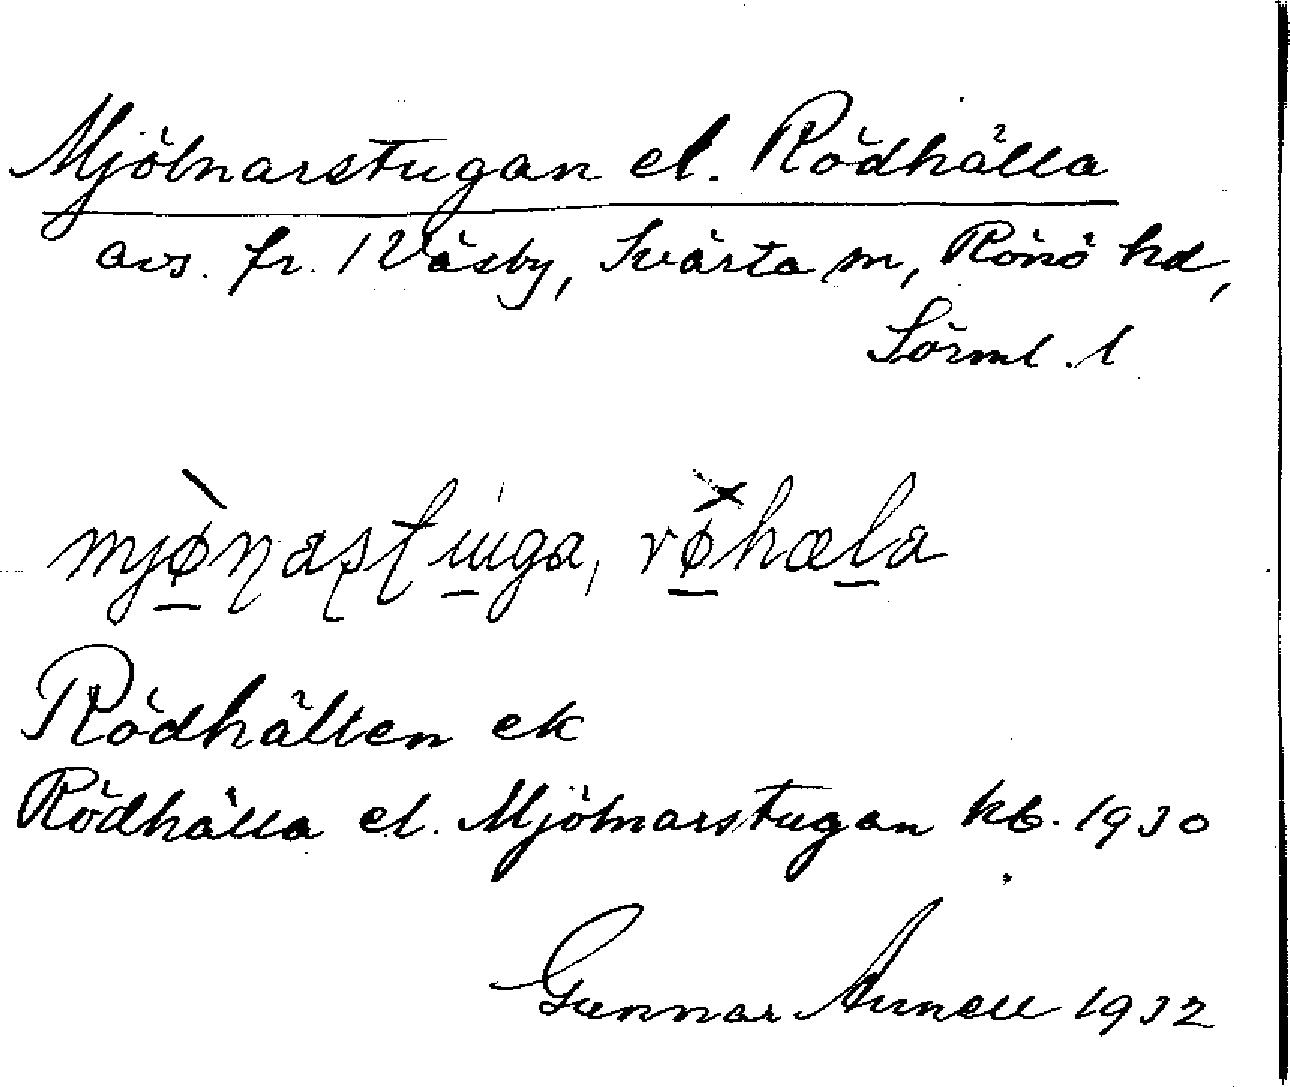 Mjölnarstugan el. Rödhälla
avs. fr. 1 Väsby, Svärta sn, Rönö hd,
Sörml. l
mjø̀ṇaṣtuga, vø̌hæla
Rödhällen ek
Rödhälla el. Mjölnarstugan kb. 1930
Gunnar Annell 1932